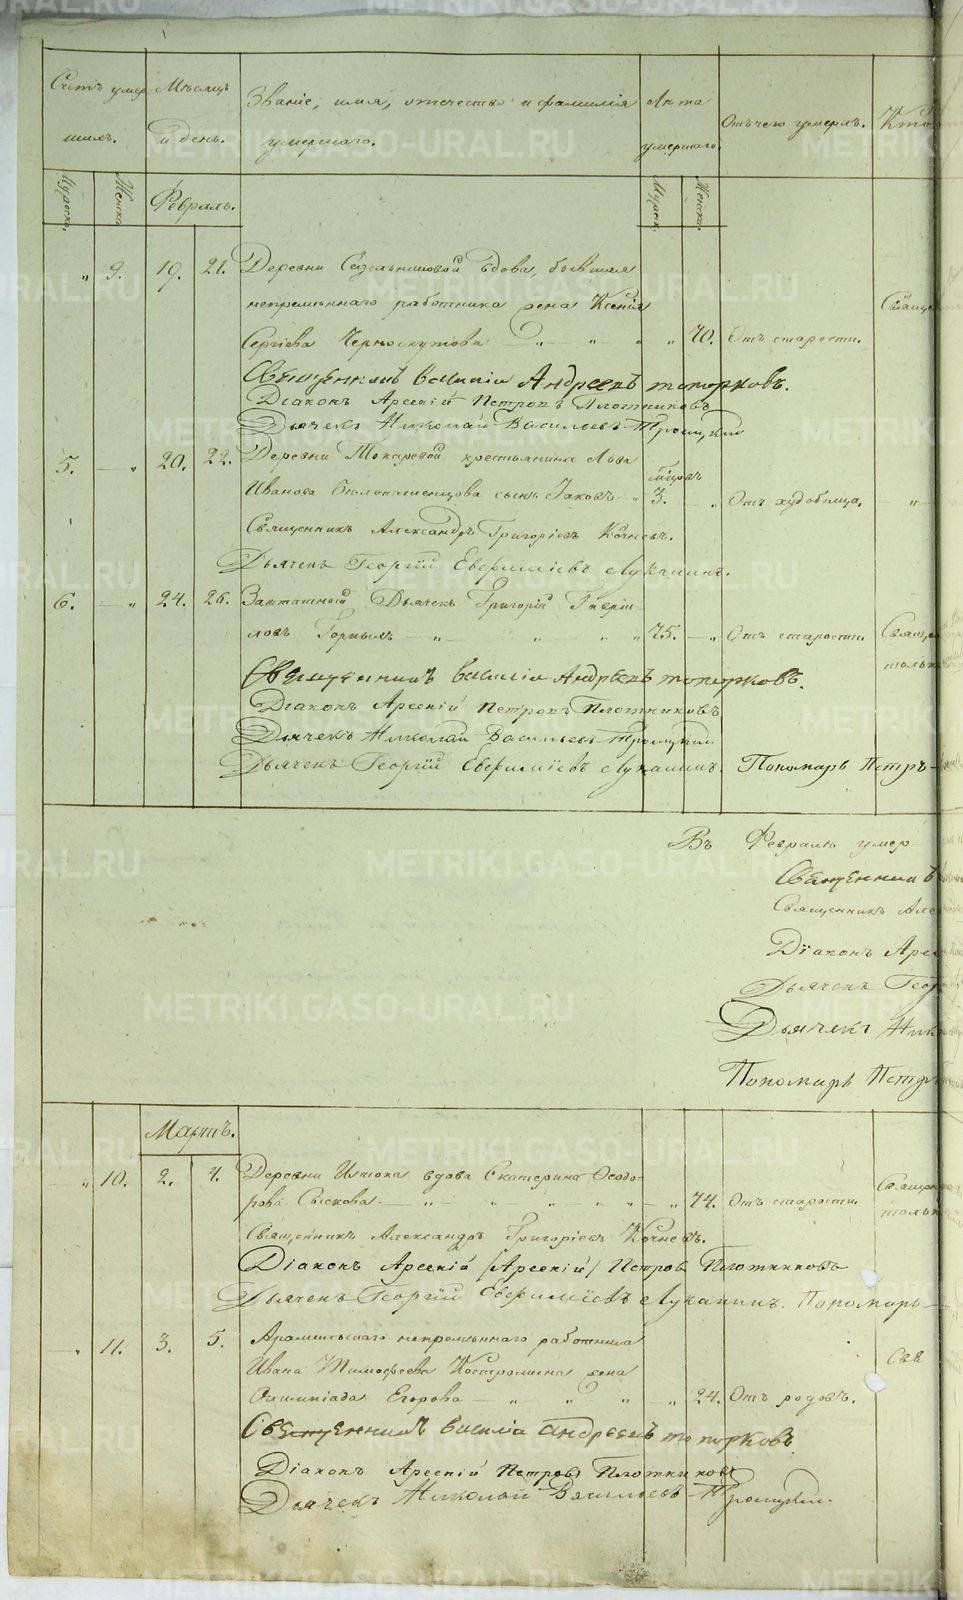 Счетъ умер Мѣсяцъ Званіе, имя, отечество и фамилія Лѣта Отъ чего умеръ. Кто
шихъ. и день. умершаго. умершаго.
Мужска. Женска. Февраль. Мужск. Женск.
" 9. 19. 21. Деревни вдова, бывшая
непремѣннаго работника жена Ксенія Свящe
Сергіева Черноскутова " " " " 70. Отъ старости.
Свещенникъ василіи Андреевъ топорковъ.
Діаконъ Арсеній Петровъ Плотниковъ
Дьячекъ Николай Васильевъ Троицкій
5. " 20. 22. Деревни Токаревой крестьянина Льва мѣцовъ
Иванова Бѣлопашенцова сынъ Іаковъ " 3. " Отъ худобища. "
Священникъ Александръ Григоріевъ Кочневъ.
Дьячекъ Георгій Евфиміевъ Луканинъ.
6. " 24. 26. Заштатной Дьячекъ Григорій Гаврі
ловъ " " " " 75. " Отъ старости. Свящ
тольк
Свещенникъ василіи Андреевъ топорковъ.
Діаконъ Арсеній Петровъ Плотниковъ
Дьячекъ Николай Васильевъ Троицкій
Дьячекъ Георгій Евфиміевъ Луканинъ. Пономарь Петръ
Въ Февралѣ умер
Свещенникъ
Священникъ Але
Діаконъ Арс
Дьячекъ Геор
Дьячекъ Ник
Пономарь Петръ
Мартъ.
" 10. 2. 4. Деревни Истока вдова Екатерина Ѳеодо- Свящ
рова Сыскова " " " " " " 74. Отъ старости. тольк
Священникъ Александръ Григоріевъ Кочневъ.
Діаконъ Арсеній /Арсеній/ Петровъ Плотниковъ
Дьячекъ Георгій Евфиміевъ Луканинъ. Пономарь
" 11. 3. 5. Арамильскаго непремѣннаго работника Свя
Ивана Тимофеева Костромина жена
Олимпіада Егорова " " " " 24. Отъ родовъ.
Свещенникъ василіи андреевъ топорковъ.
Діаконъ Арсеній Петровъ Плотниковъ
Дьячекъ Николай Васильевъ Троицкій.
METRIKI.GASO-URAL.RU